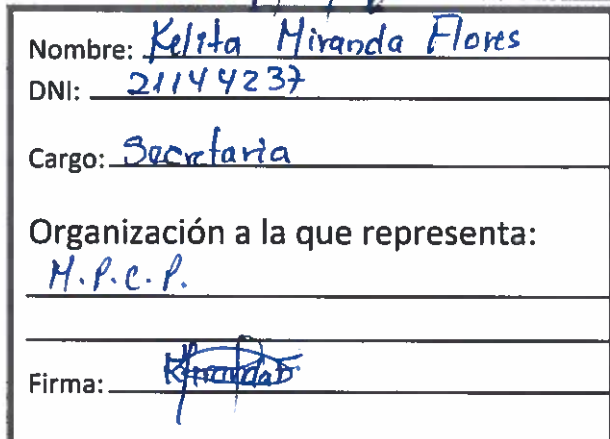 Nombre: Kelita Miranda Flores
DNI: 21144237
Cargo: Secretaria
Organización a la que representa:
M.P.C.P.
Firma: